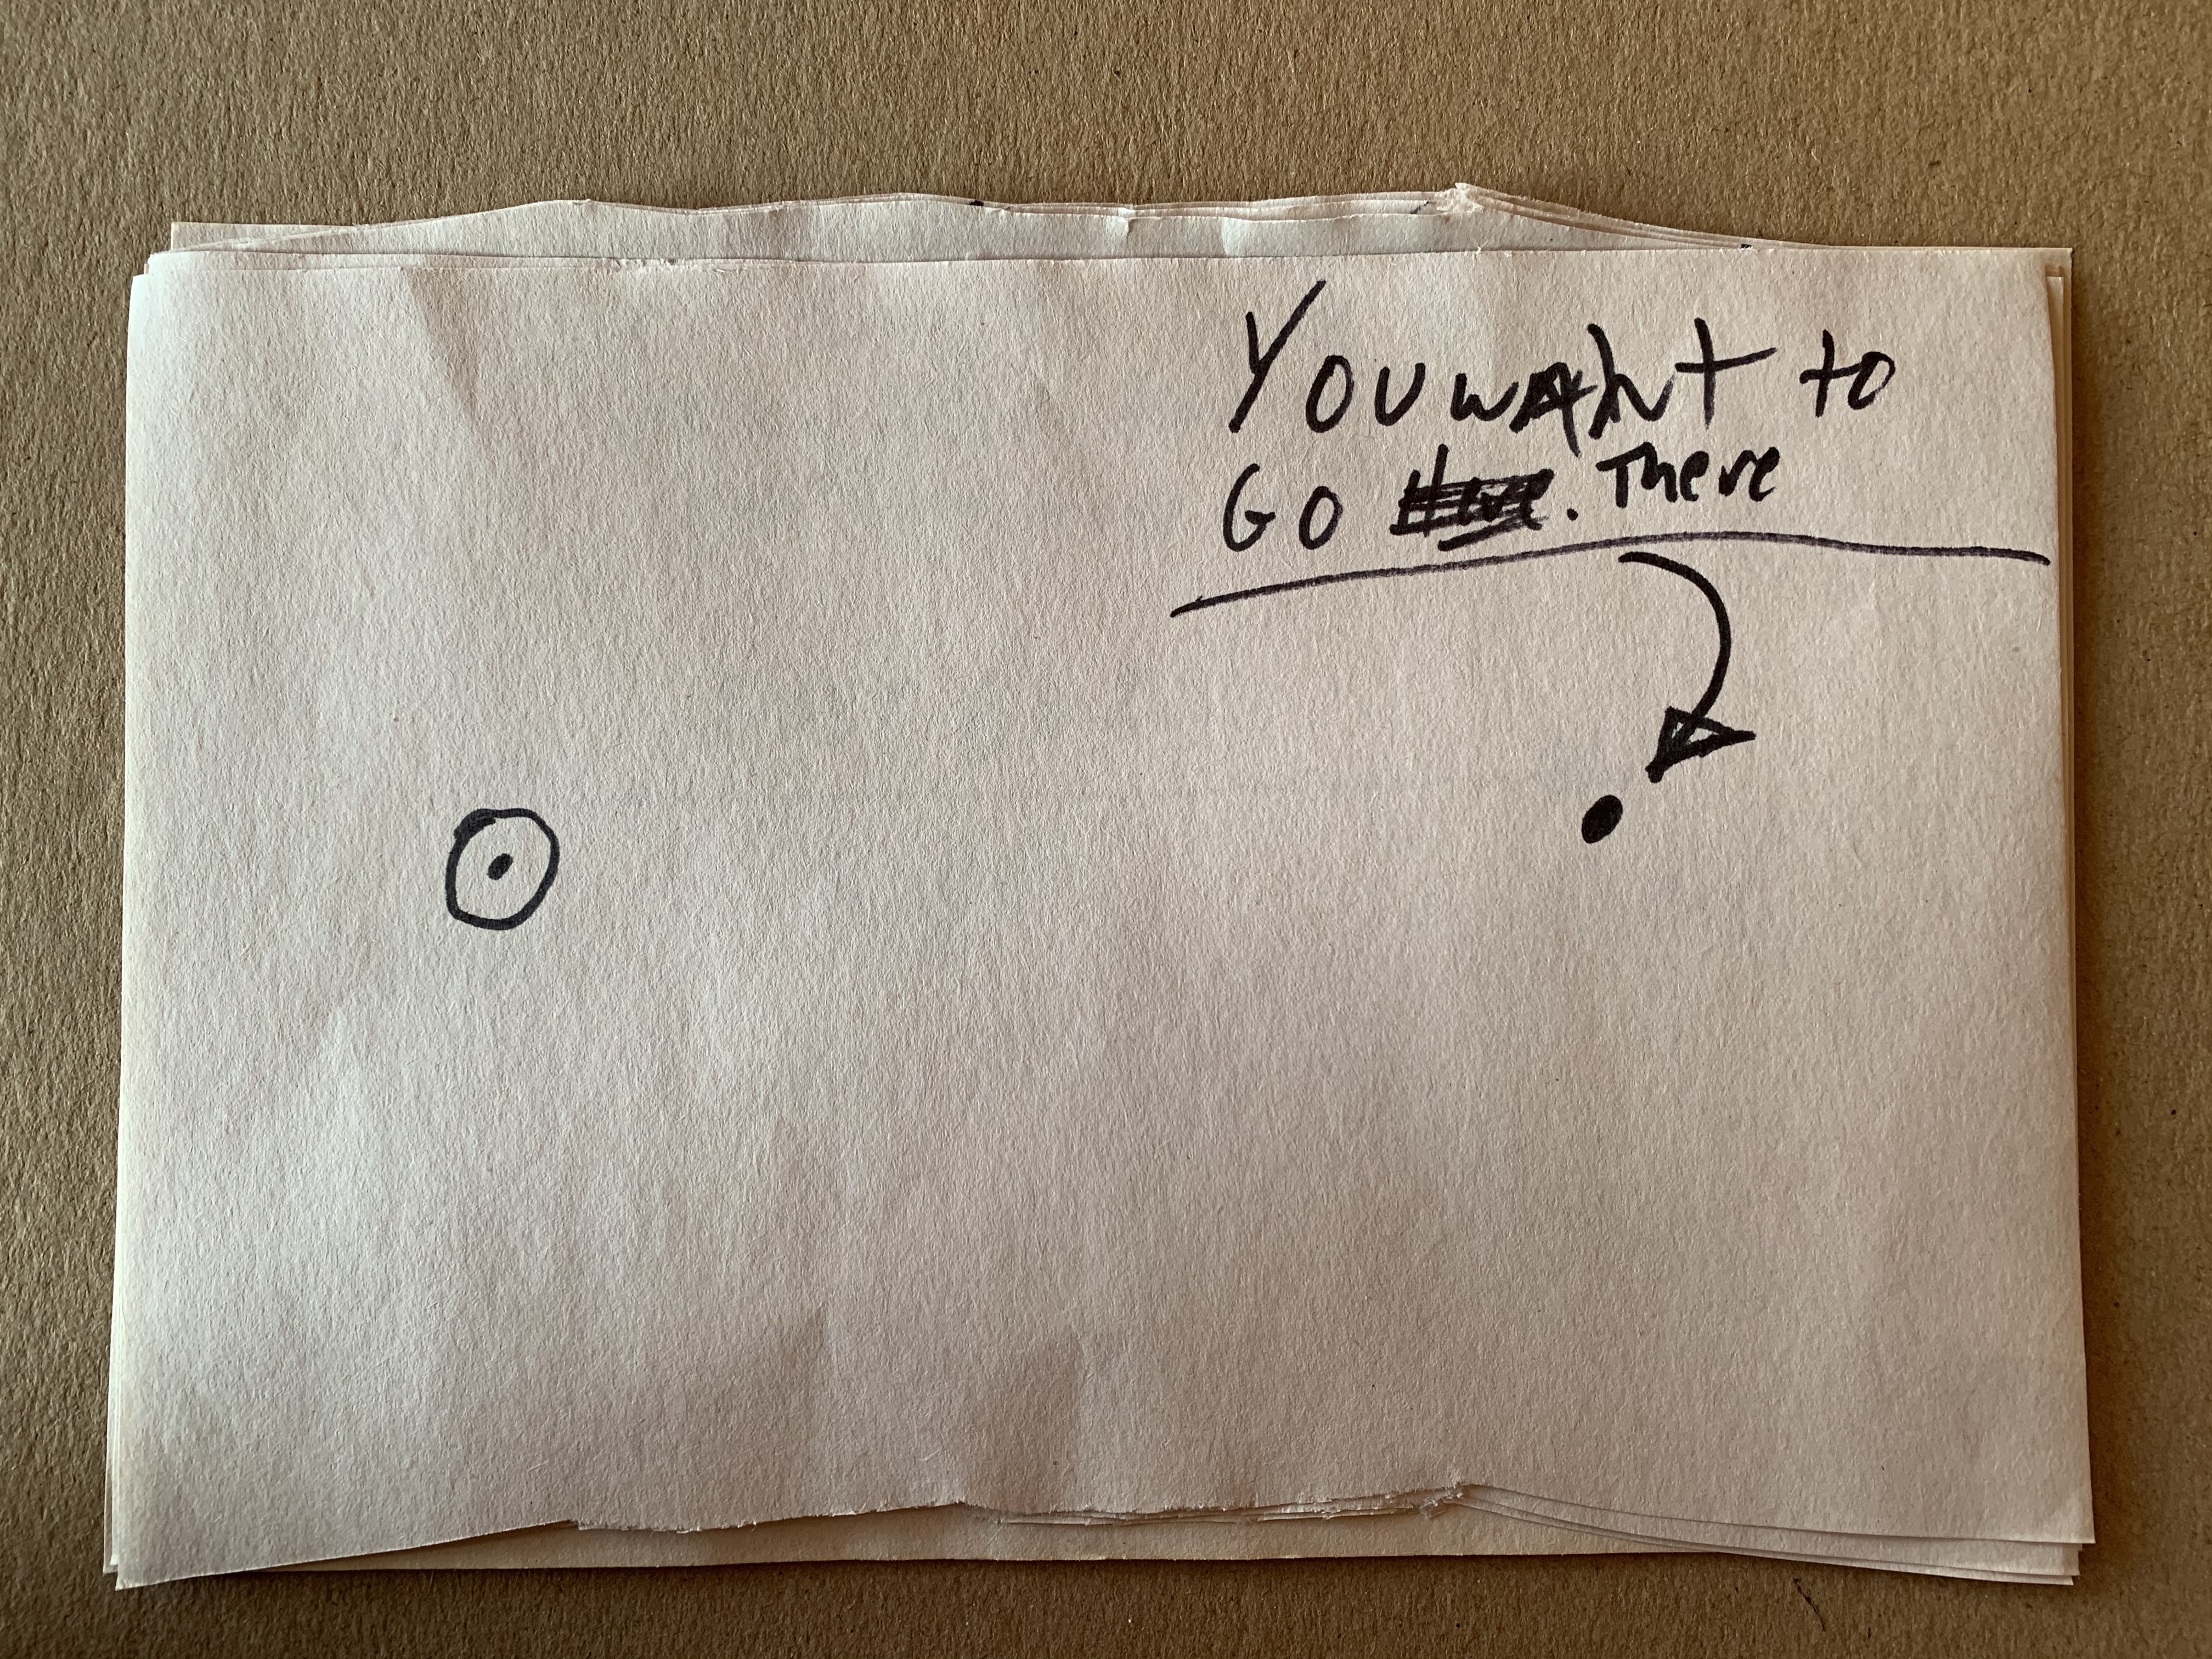 You want to
Go . There